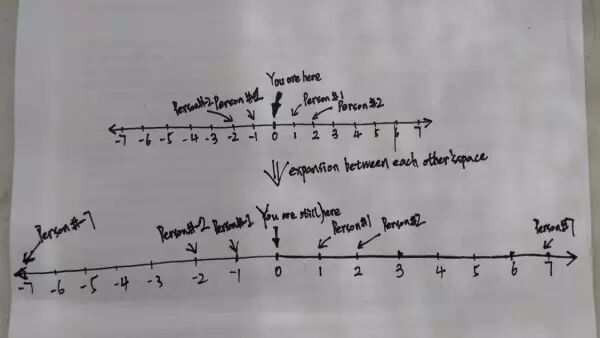 You are here
Person#-2 Person#-1 Person#1
Person#2
-7 -6 -5 -4 -3 -2 -1 0 1 2 3 4 5 6 7
expansion between each other's space
Person#-7 Person#-2 Person#-1 You are still here Person#1 Person#2 Person#7
-7 -6 -5 -4 -3 -2 -1 0 1 2 3 4 5 6 7